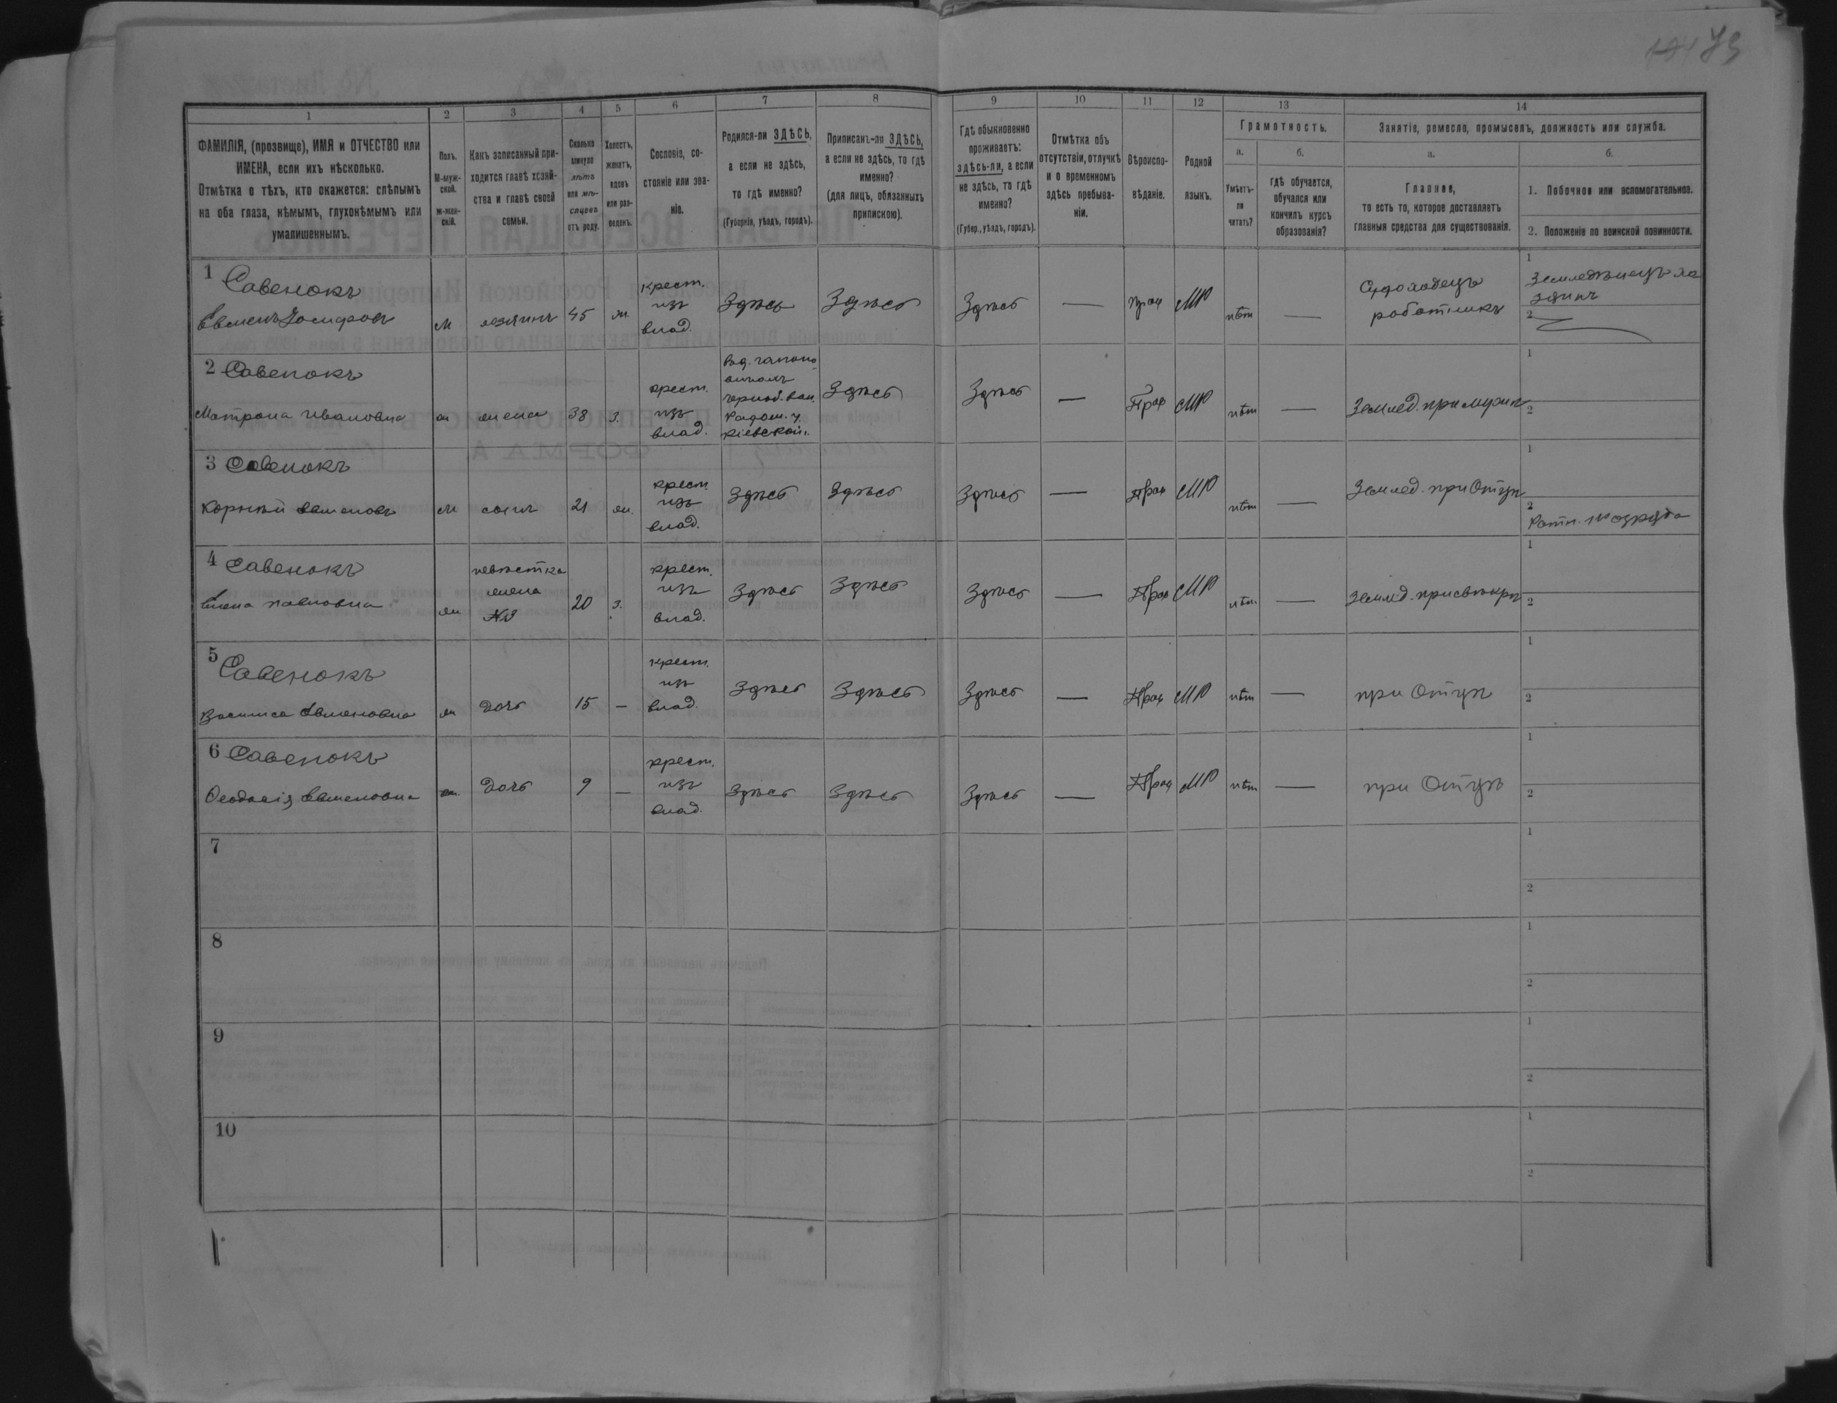 79
1 2 3 4 5 6 7 8 9 10 11 12 13 14
ФАМИЛІЯ, (прозвище), ИМЯ и ОТЧЕСТВО или
ИМЕНА, если ихъ нѣсколько.
Отмѣтка о тѣхъ, кто окажется: слѣпымъ
на оба глаза, нѣмымъ, глухонѣмымъ или
умалишеннымъ.
Полъ.
М-муж-
ской.
Ж-жен-
скій.
Какъ записанный при-
ходится главѣ хозяй-
ства и главѣ своей
семьи.
Сколько
минуло
лѣтъ
или мѣ-
сяцевъ
отъ роду.
Холостъ,
женатъ,
вдовъ
или раз-
веденъ.
Сословіе, со-
стояніе или зва-
ніе.
Родился-ли ЗДѢСЬ,
а если не здѣсь,
то гдѣ именно?
(Губернія, уѣздъ, городъ).
Приписанъ-ли ЗДѢСЬ,
а если не здѣсь, то гдѣ
именно?
(для лицъ, обязанныхъ
припискою).
Гдѣ обыкновенно
проживаетъ:
здѣсь-ли, а если
не здѣсь, то гдѣ
именно?
(Губер., уѣздъ, городъ).
Отмѣтка объ
отсутствіи, отлучкѣ
и о временномъ
здѣсь пребыва-
ніи.
Вѣроиспо-
вѣданіе.
Родной
языкъ.
Грамотность.
а.
Умѣетъ-
ли
читать?
б.
Гдѣ обучается,
обучался или
кончилъ курсъ
образованія?
Занятіе, ремесло, промыселъ, должность или служба.
а.
Главное,
то есть то, которое доставляетъ
главныя средства для существованія.
б.
1. Побочное или вспомогательное.
2. Положеніе по воинской повинности.
1 Савенокъ
м хозяинъ 45 ж. крест. изъ влад. Здѣсь Здѣсь Здѣсь — прав МР нѣт —
работникъ
1
2
2 Савенокъ
Матрона Ивановна ж жена 38 з. крест. изъ влад.
Радом. у.
Кіевской.
Здѣсь Здѣсь — Прав МР нѣт — Землед. при мужѣ
1
2
3 Савенокъ
Корній Евменовъ м сынъ 21 ж. крест. изъ влад. Здѣсь Здѣсь Здѣсь — Прав МР нѣт — Землед. при Отцѣ
1
2
Ратн. 1го разряда
4 Савенокъ
Елена Павловна ж невѣстка жена №3 20 з. крест. изъ влад. Здѣсь Здѣсь Здѣсь — Прав МР нѣт — Землед. при свѣкрѣ
1
2
5 Савенокъ
Василиса Евменовна ж дочь 15 — крест. изъ влад. Здѣсь Здѣсь Здѣсь — Прав МР нѣт — при Отцѣ
1
2
6 Савенокъ
Ѳеодосія Евменовна ж дочь 9 — крест. изъ влад. Здѣсь Здѣсь Здѣсь — Прав МР нѣт — при Отцѣ
1
2
7
1
2
8
1
2
9
1
2
10
1
2